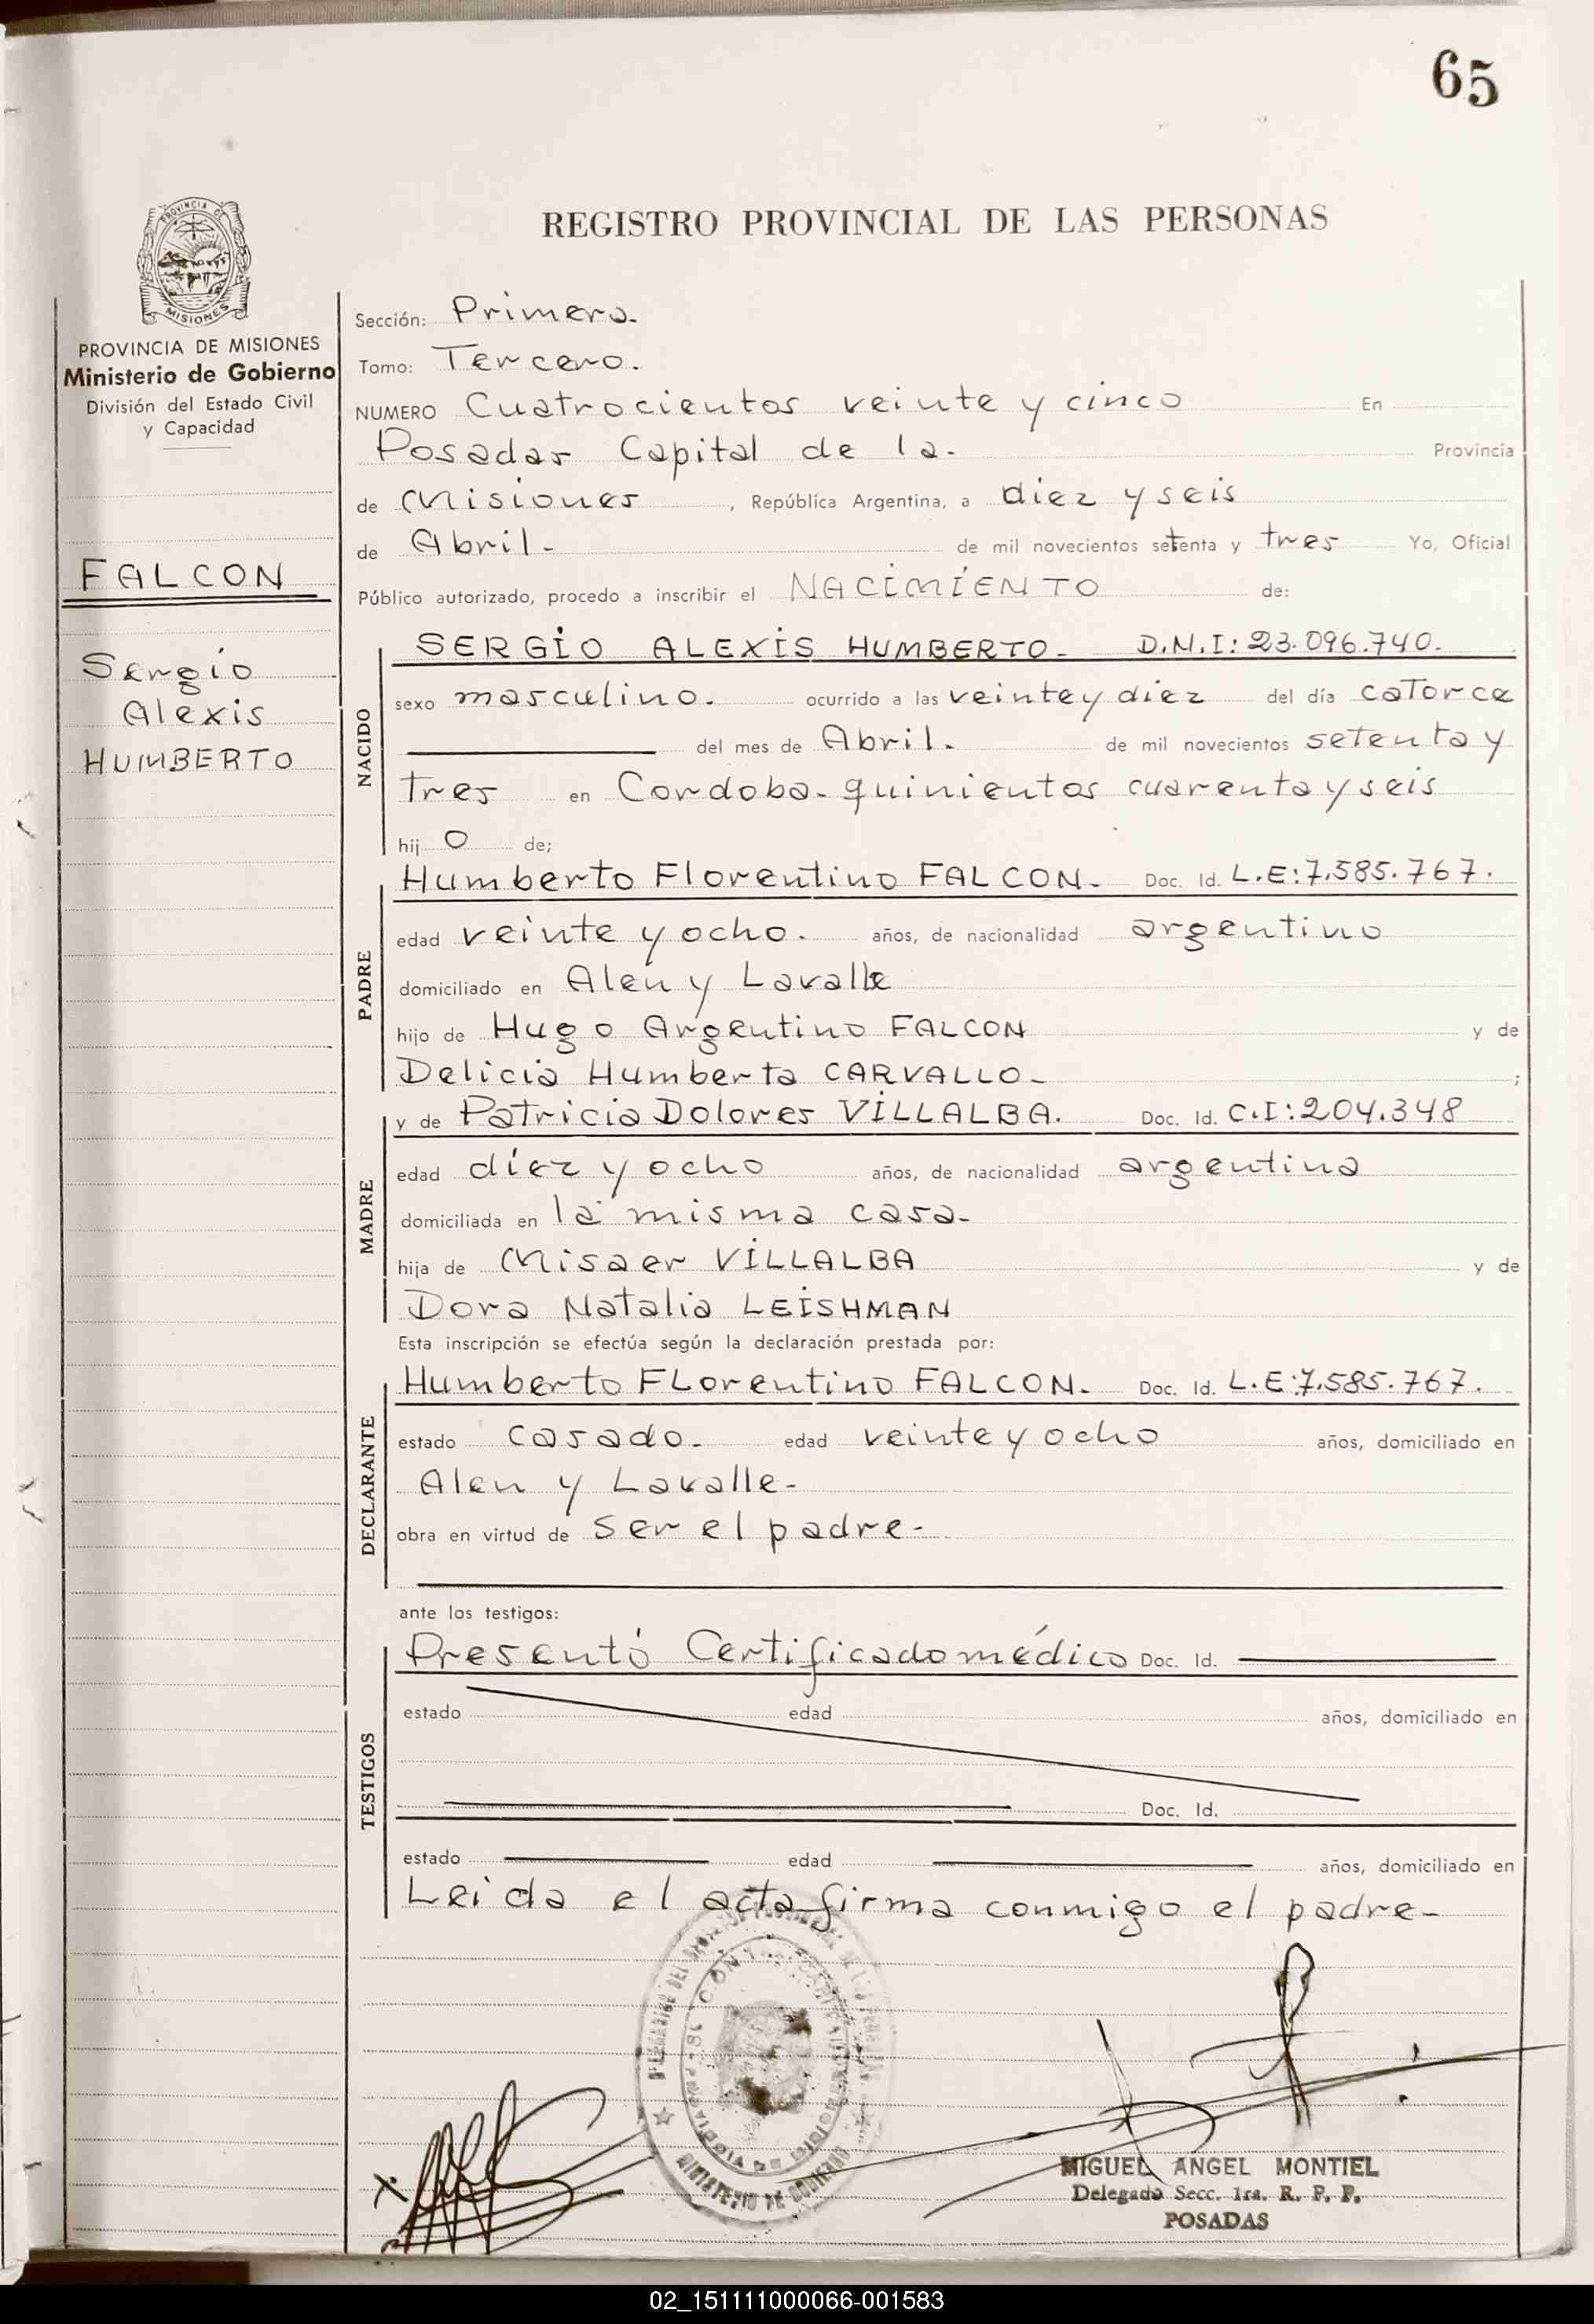 65
REGISTRO PROVINCIAL DE LAS PERSONAS
PROVINCIA DE
MISIONES
PROVINCIA DE MISIONES
Ministerio de Gobierno
División del Estado Civil
y Capacidad
FALCON
Sergio
Alexis
HUMBERTO
Sección: Primera.
Tomo: Tercero.
NUMERO Cuatrocientos veinte y cinco En
Posadas Capital de la. Provincia
de Misiones, República Argentina, a diez y seis
de Abril. de mil novecientos setenta y tres Yo, Oficial
Público autorizado, procedo a inscribir el NACIMIENTO de:
NACIDO
SERGIO ALEXIS HUMBERTO. D.N.I: 23.096.740.
sexo masculino. ocurrido a las veinte y diez del día catorce
del mes de Abril. de mil novecientos setenta y
tres en Cordoba. quinientos cuarenta y seis
hij o de;
PADRE
Humberto Florentino FALCON. Doc. Id. L.E:7.585.767.
edad veinte y ocho. años, de nacionalidad argentino
domiciliado en Alen y Lavalle
hijo de Hugo Argentino FALCON y de
Delicia Humberta CARVALLO. ;
MADRE
y de Patricia Dolores VILLALBA. Doc. Id. C.I:204.348
edad diez y ocho años, de nacionalidad argentina
domiciliada en la misma casa.
hija de Misaer VILLALBA y de
Dora Natalia LEISHMAN
Esta inscripción se efectúa según la declaración prestada por:
DECLARANTE
Humberto FLorentino FALCON. Doc. Id. L.E:7.585.767.
estado casado. edad veinte y ocho años, domiciliado en
Alen y Lavalle.
obra en virtud de ser el padre.
ante los testigos:
TESTIGOS
Presentó Certificado médico Doc. Id.
estado edad años, domiciliado en
Doc. Id.
estado edad años, domiciliado en
Leida el acta firma conmigo el padre.
MINISTERIO DE GOBIERNO
MIGUEL ANGEL MONTIEL
Delegado Secc. 1ra. R. P. P.
POSADAS
02_151111000066-001583